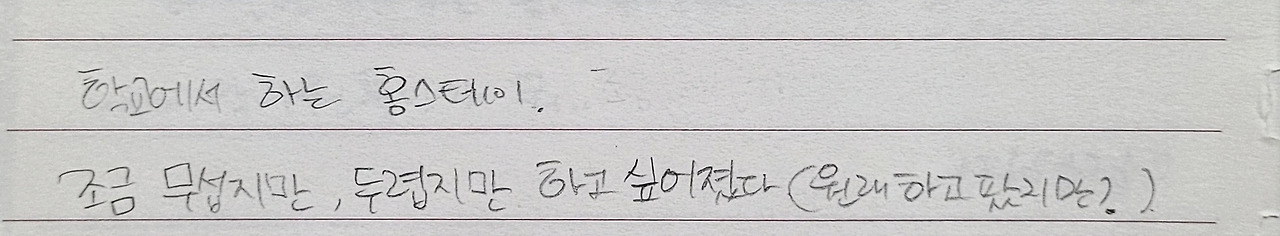 학교에서 하는 홈스테이.
조금 무섭지만, 두렵지만 하고 싶어졌다 (원래 하고팠지만?)